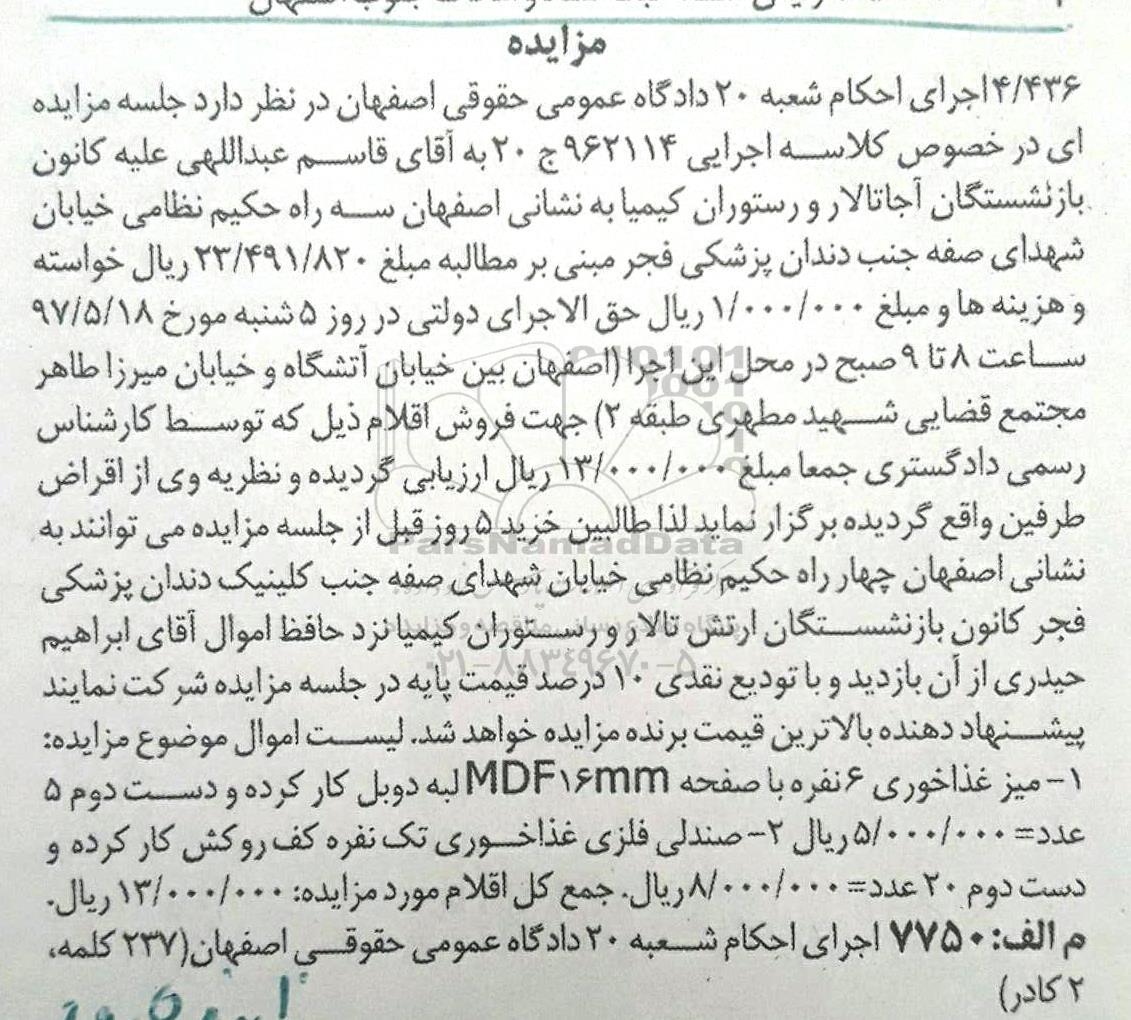 مزایده
۴/۴۳۶ اجرای احکام شعبه ۲۰ دادگاه عمومی حقوقی اصفهان در نظر دارد جلسه مزایده
ای در خصوص کلاسه اجرایی ۹۶۲۱۱۴ ج ۲۰ به آقای قاسم عبداللهی علیه کانون
بازنشستگان آجاتالار و رستوران کیمیا به نشانی اصفهان سه راه حکیم نظامی خیابان
شهدای صفه جنب دندان پزشکی فجر مبنی بر مطالبه مبلغ ۲۳/۴۹۱/۸۲۰ ریال خواسته
و هزینه ها و مبلغ ۱/۰۰۰/۰۰۰ ریال حق الاجرای دولتی در روز ۵ شنبه مورخ ۹۷/۵/۱۸
ساعت ۸ تا ۹ صبح در محل این اجرا (اصفهان بین خیابان آتشگاه و خیابان میرزا طاهر
مجتمع قضایی شهید مطهری طبقه ۲) جهت فروش اقلام ذیل که توسط کارشناس
رسمی دادگستری جمعا مبلغ ۱۳/۰۰۰/۰۰۰ ریال ارزیابی گردیده و نظریه وی از اقراض
طرفین واقع گردیده برگزار نماید لذا طالبین خرید ۵ روز قبل از جلسه مزایده می توانند به
ParsNamadData
نشانی اصفهان چهار راه حکیم نظامی خیابان شهدای صفه جنب کلینیک دندان پزشکی
فجر کانون بازنشستگان ارتش تالار و رستوران کیمیا نزد حافظ اموال آقای ابراهیم
۰۲۱-۸۸۳۴۹۶۷۰-۵
حیدری از آن بازدید و با تودیع نقدی ۱۰ درصد قیمت پایه در جلسه مزایده شرکت نمایند
پیشنهاد دهنده بالاترین قیمت برنده مزایده خواهد شد. لیست اموال موضوع مزایده:
۱- میز غذاخوری ۶ نفره با صفحه MDF۱۶mm لبه دوبل کار کرده و دست دوم ۵
عدد= ۵/۰۰۰/۰۰۰ ریال ۲- صندلی فلزی غذاخوری تک نفره کف روکش کار کرده و
دست دوم ۲۰ عدد= ۸/۰۰۰/۰۰۰ ریال. جمع کل اقلام مورد مزایده: ۱۳/۰۰۰/۰۰۰ ریال.
م الف: ۷۷۵۰ اجرای احکام شعبه ۲۰ دادگاه عمومی حقوقی اصفهان(۲۳۷ کلمه،
۲ کادر)